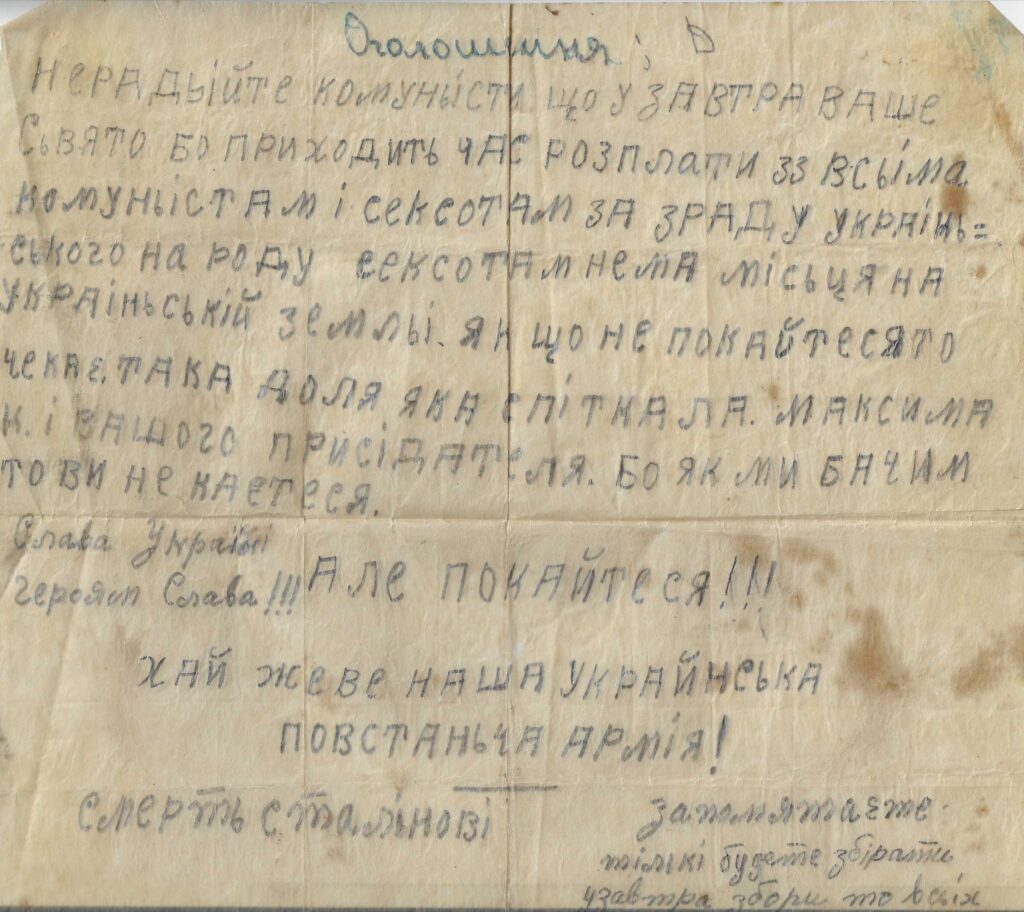 Оголошиння;
НЕРАДЫЙТЕ КОМУНЫІСТИ ЩО УЗАВТРА ВАШЕ
СЬВЯТО БО ПРИХОДИТЬ ЧАС РОЗПЛАТИ ЗЗ ВСЬІМА
КОМУНЬІСТАМ І СЕКСОТАМ ЗА ЗРАДУ УКРАІНЬ=
СЬКОГО НА РОДУ СЕКСОТАМ НЕМА МІСЬЦЯ НА
УКРАІНЬСЬКІЙ ЗЕМЛЬІ. ЯК ЩО НЕ ПОКАЙТЕСЯ ТО
ЧЕКАЄ ТАКА ДОЛЯ ЯКА СПІТКАЛА. МАКСИМА
К. І ВАШОГО ПРИСІДАТЕЛЯ. БО ЯК МИ БАЧИМ
ТО ВИ НЕ КАЄТЕСЯ.
Слава Україні
Героям Слава!!!
АЛЕ ПОКАЙТЕСЯ!!!
ХАЙ ЖЕВЕ НАША УКРАЙНСЬКА
ПОВСТАНЬЧА АРМІЯ!
Смерть Сталінові
Запомятаєте
тілкі будете збірать
узавтра збори то всіх